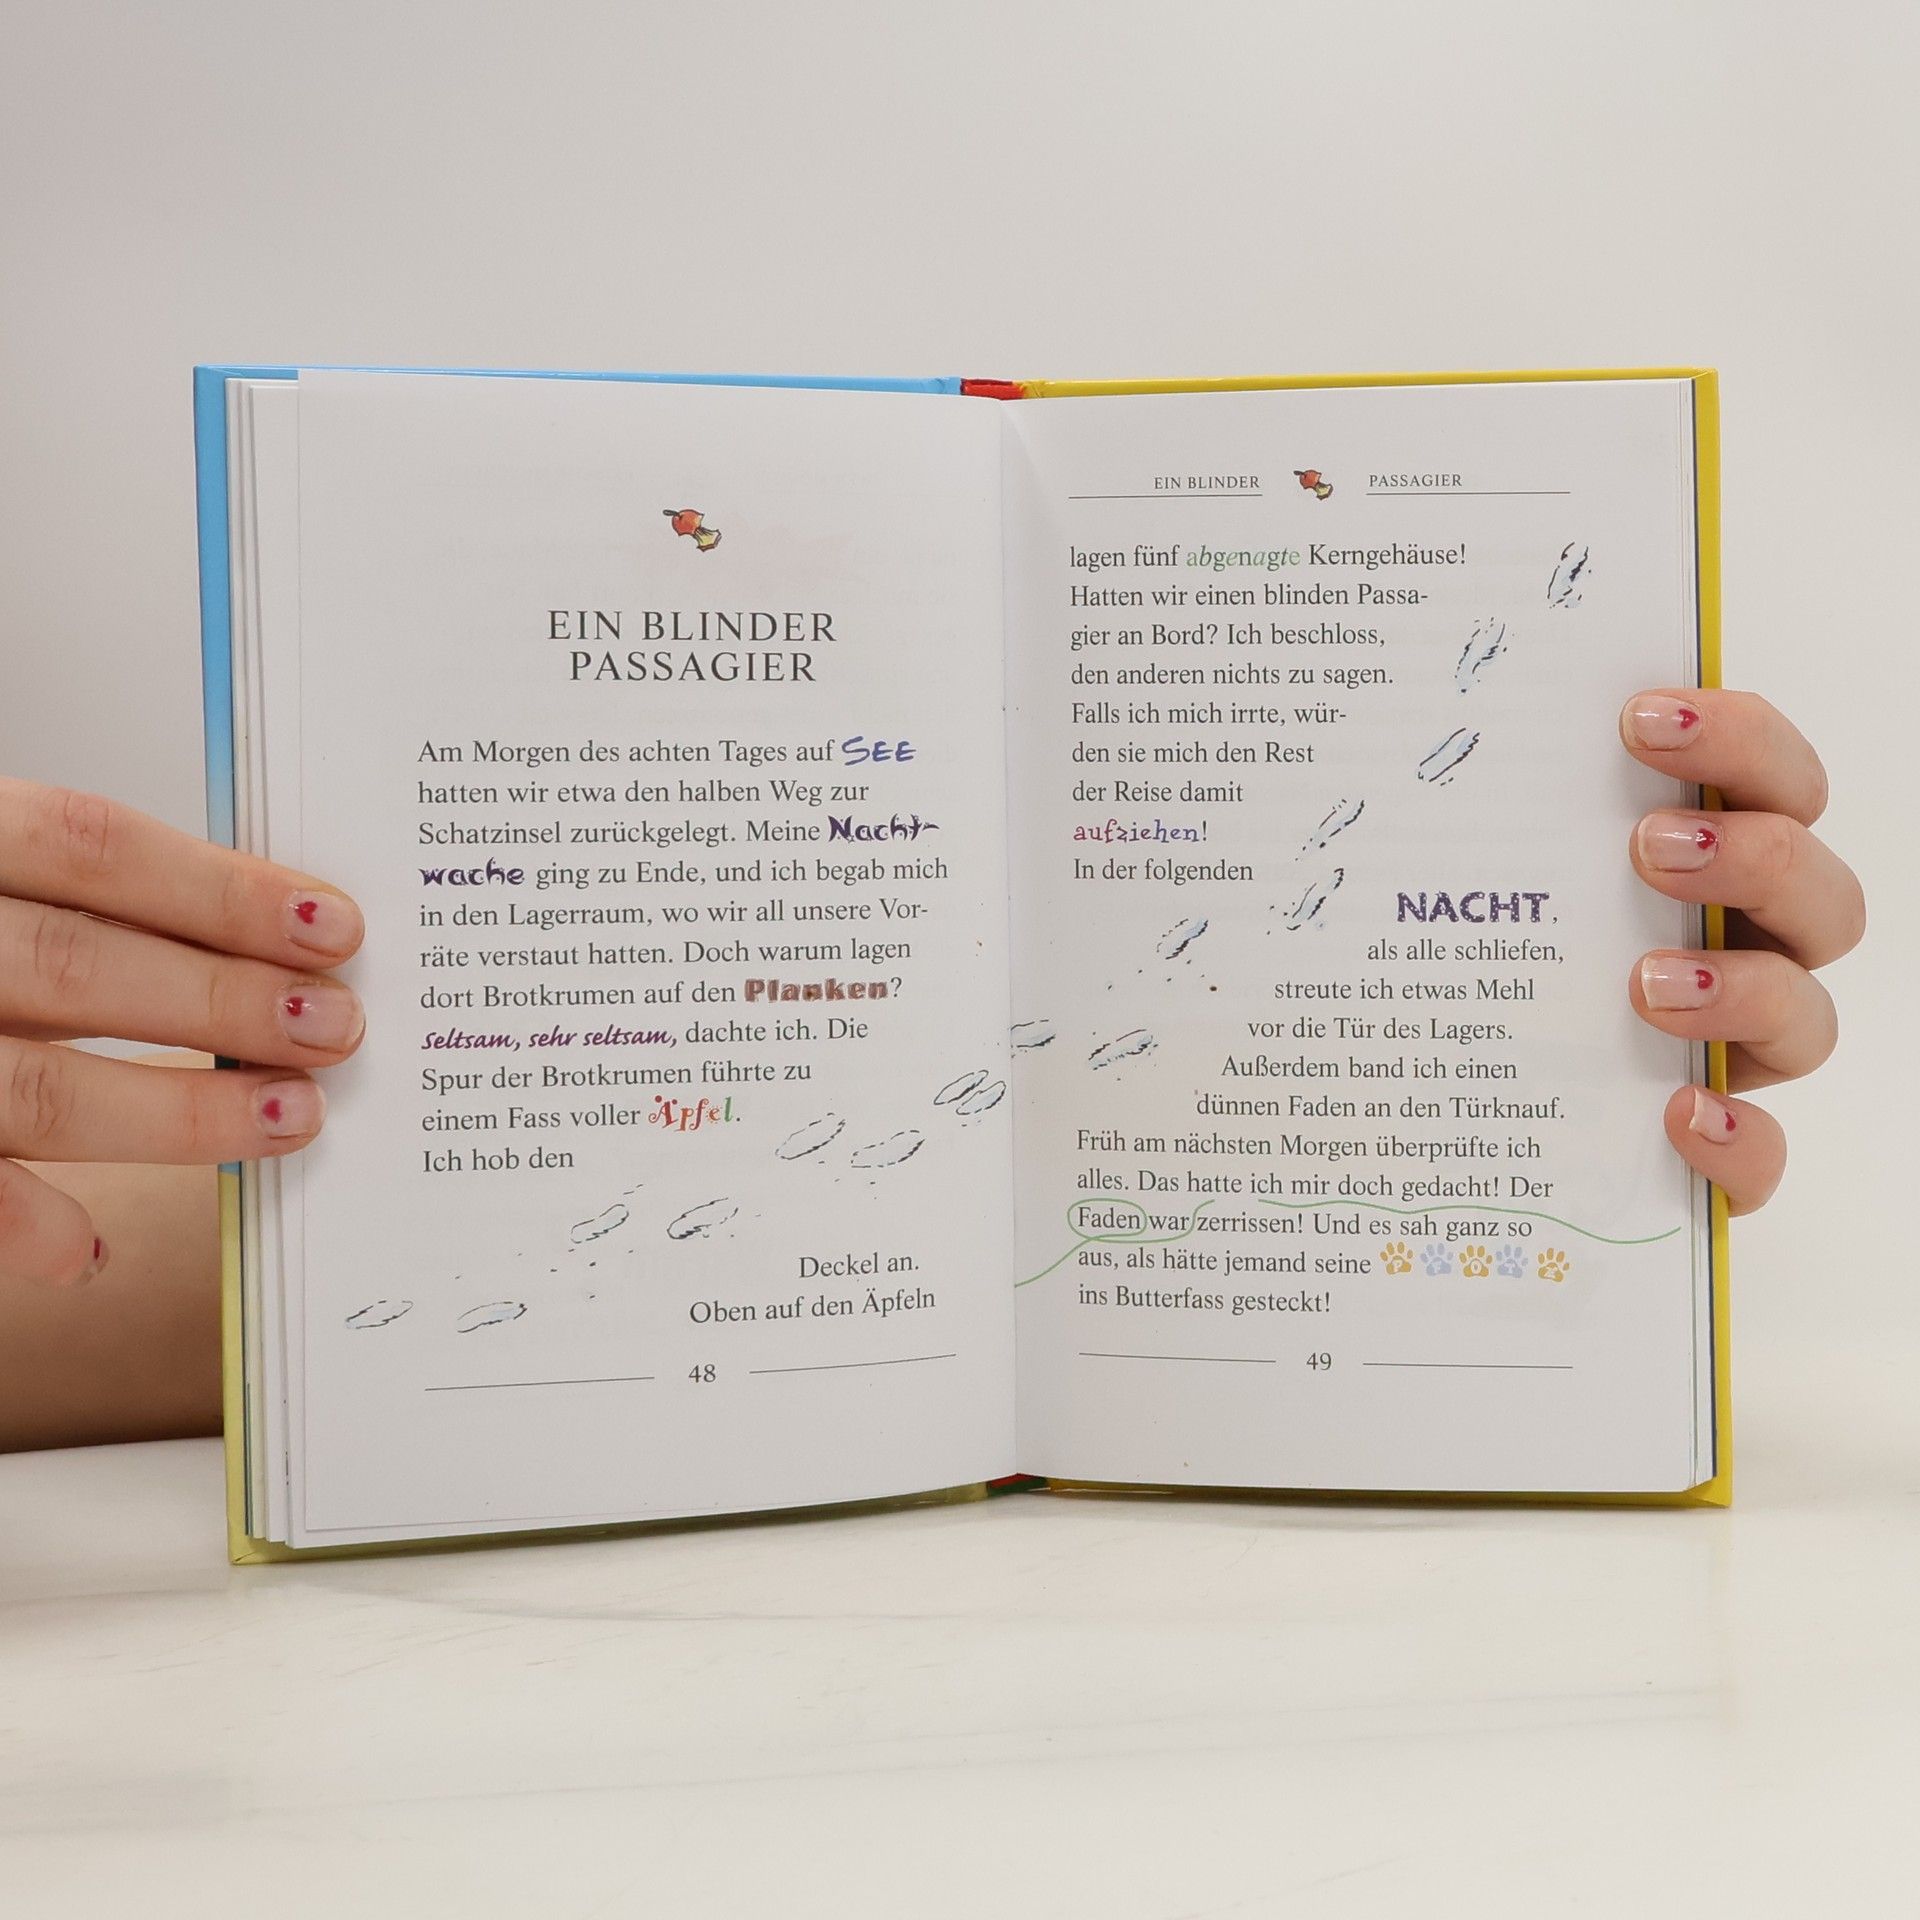 EIN BLINDER
PASSAGIER
Am Morgen des achten Tages auf SEE
hatten wir etwa den halben Weg zur
Schatzinsel zurückgelegt. Meine Nacht-
wache ging zu Ende, und ich begab mich
in den Lagerraum, wo wir all unsere Vor-
räte verstaut hatten. Doch warum lagen
dort Brotkrumen auf den Planken?
Seltsam, sehr seltsam, dachte ich. Die
Spur der Brotkrumen führte zu
einem Fass voller Äpfel.
Ich hob den
Deckel an.
Oben auf den Äpfeln
48
EIN BLINDER PASSAGIER
lagen fünf abgenagte Kerngehäuse!
Hatten wir einen blinden Passa-
gier an Bord? Ich beschloss,
den anderen nichts zu sagen.
Falls ich mich irrte, wür-
den sie mich den Rest
der Reise damit
aufziehen!
In der folgenden
NACHT,
als alle schliefen,
streute ich etwas Mehl
vor die Tür des Lagers.
Außerdem band ich einen
dünnen Faden an den Türknauf.
Früh am nächsten Morgen überprüfte ich
alles. Das hatte ich mir doch gedacht! Der
Faden war zerrissen! Und es sah ganz so
aus, als hätte jemand seine PFOTE
ins Butterfass gesteckt!
49